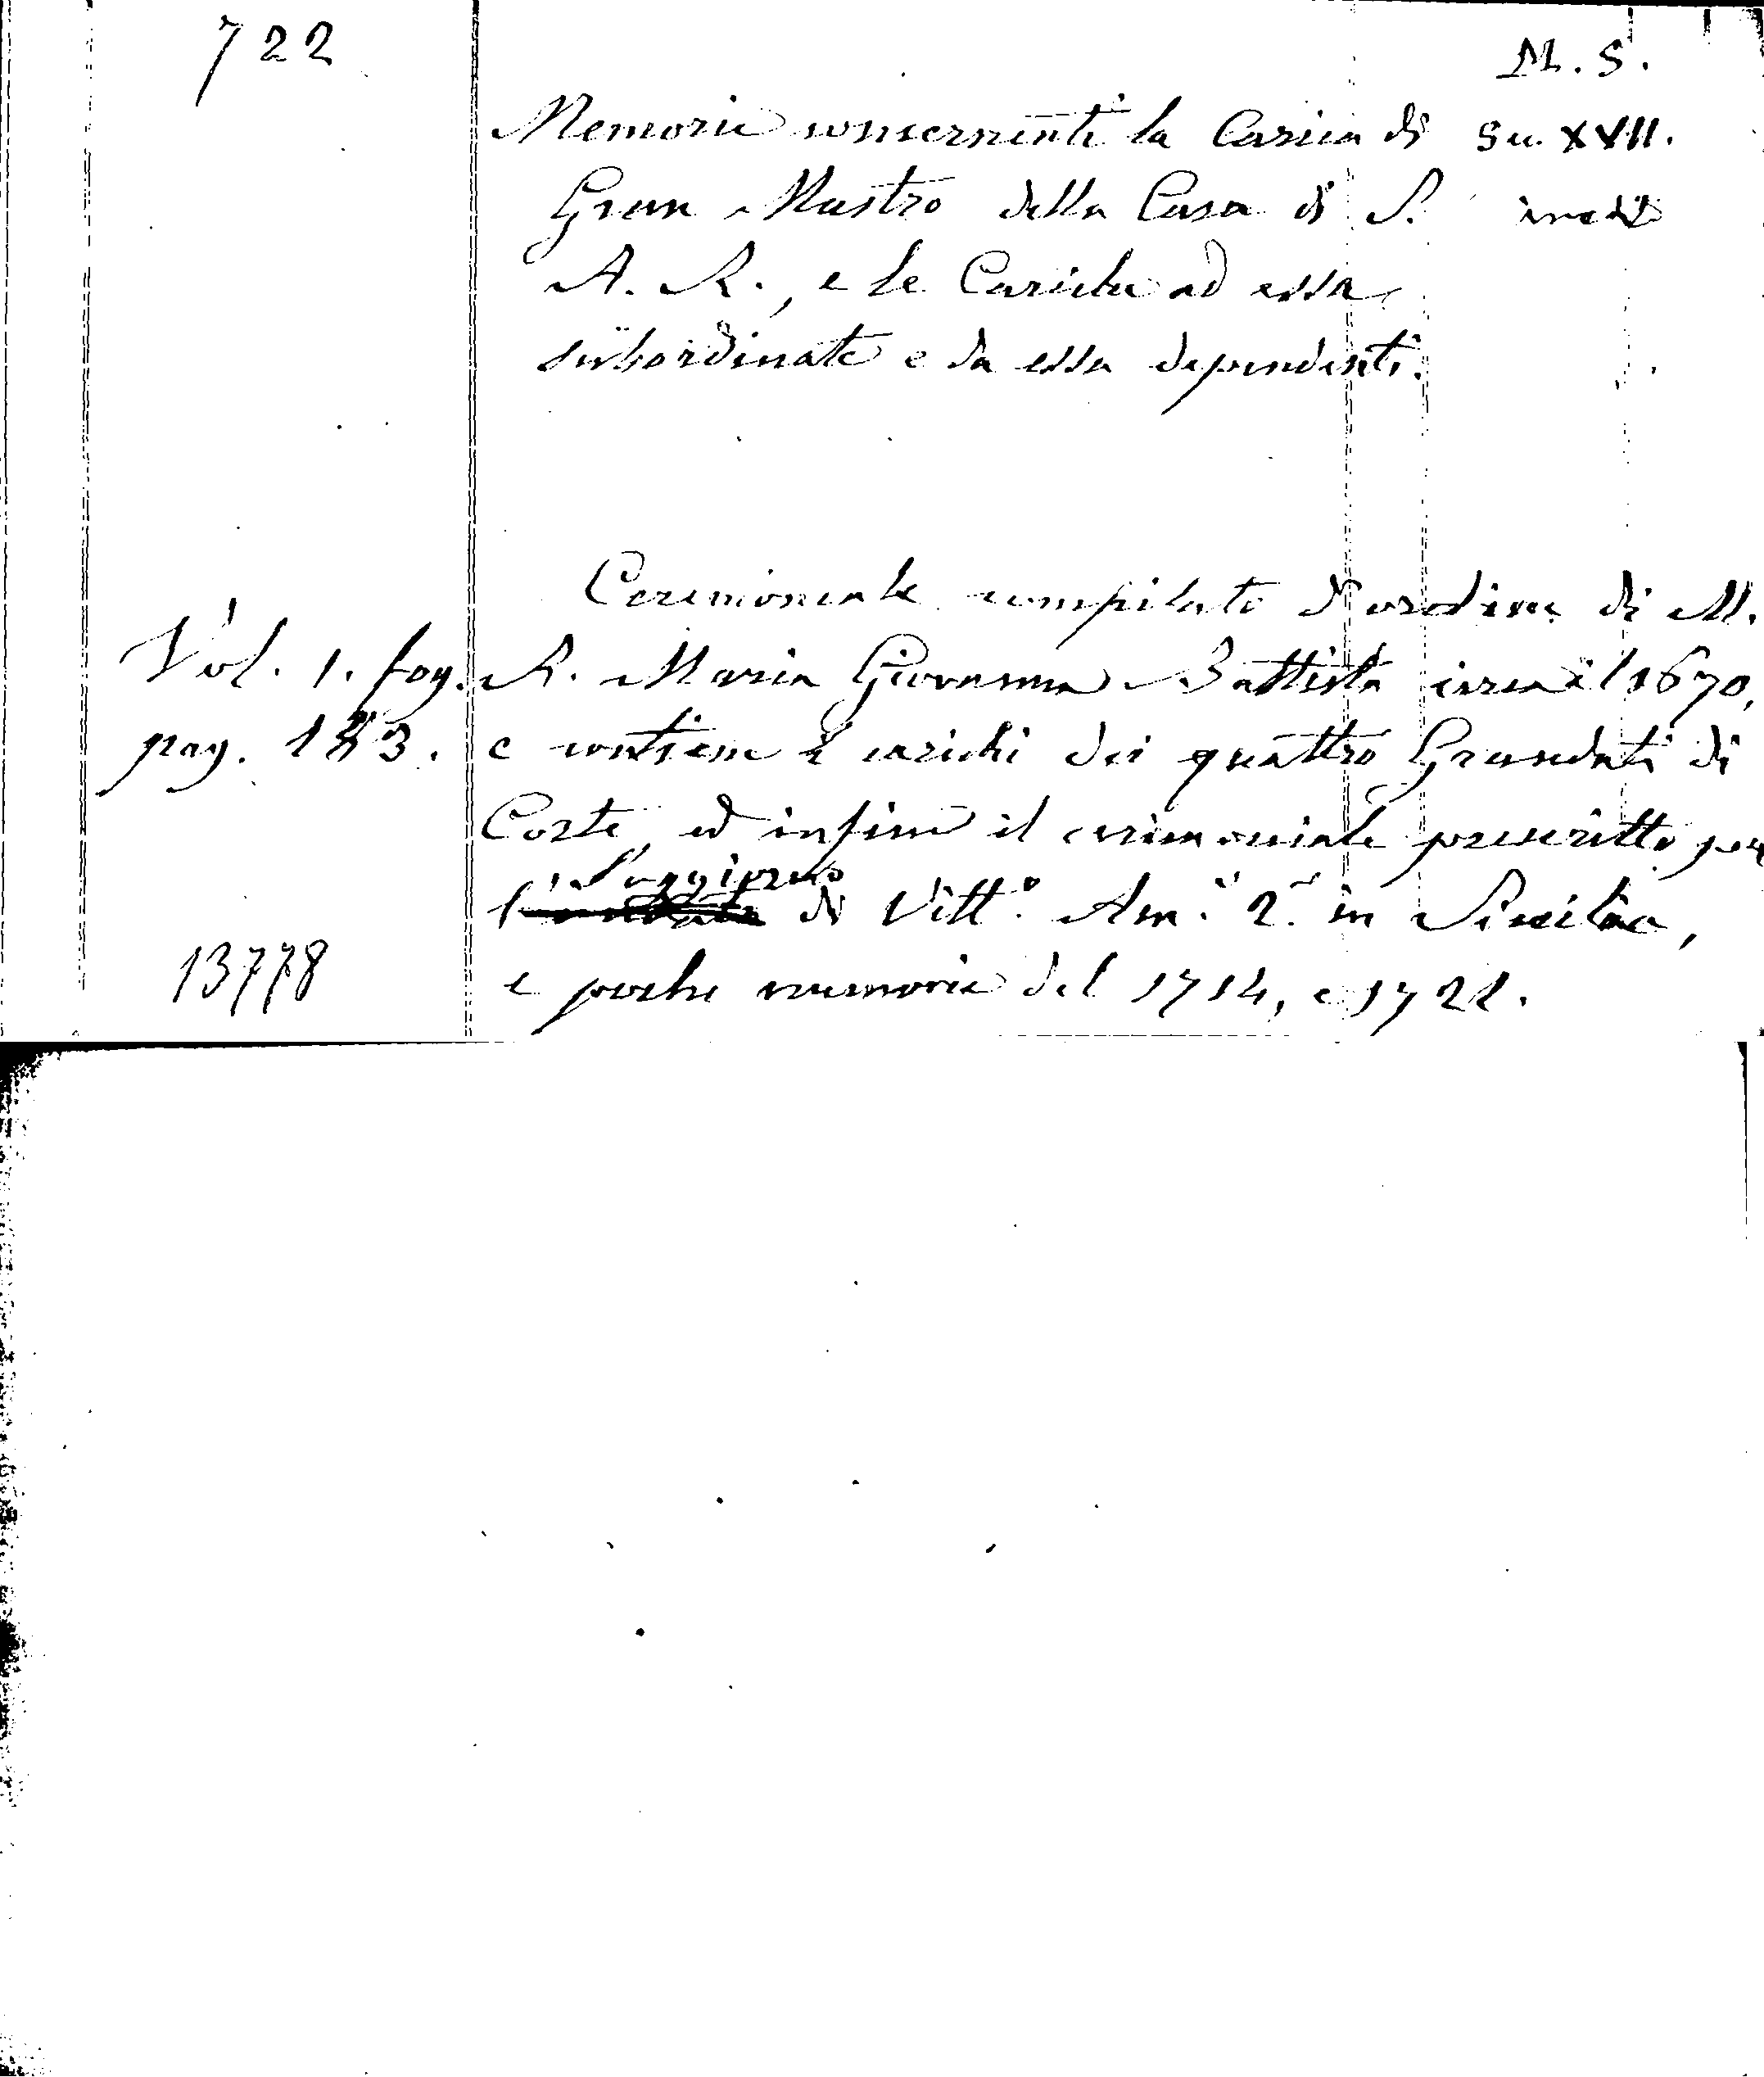 722
M. S.
Memorie concernenti la Carica di Sec. XVII.
Gran Mastro della Casa di S. inedito
A. R., e le Cariche ad essa
subordinate e da essa dependenti.
Ceremoniale compilato d'ordine di M.
Vol. 1. fog. R. Maria Giovanna Battista circa il 1670,
pag. 183. e contiene i carichi dei quattro Grandati di
Corte, ed infine il cerimoniale prescritto per
Soggiorno
l' di Vitt.o Am. 2. in Sicilia,
13778 e poche memorie del 1714, e 1722.